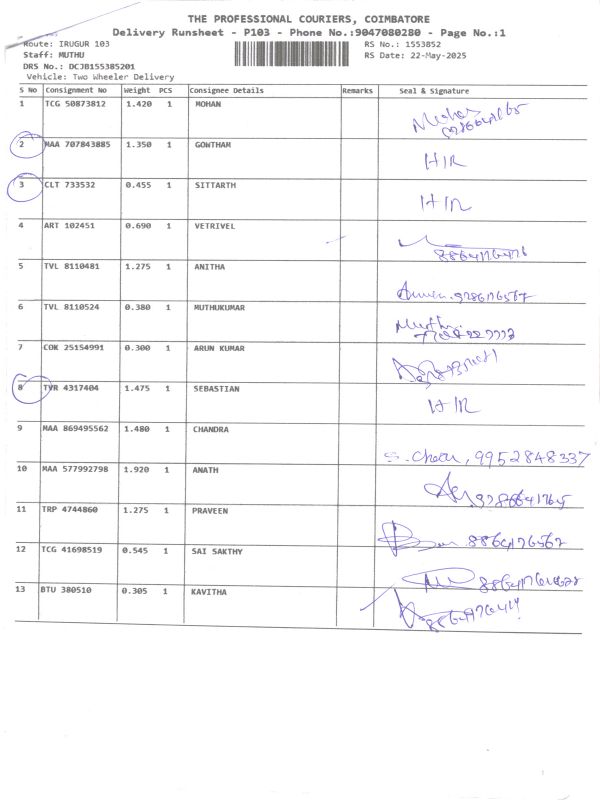 THE PROFESSIONAL COURIERS, COIMBATORE
Delivery Runsheet - P103 - Phone No.:9047080280 - Page No.:1
Route: IRUGUR 103 RS No.: 1553852
Staff: MUTHU RS Date: 22-May-2025
DRS No.: DCJB155385201
Vehicle: Two Wheeler Delivery
S No Consignment No Weight PCS Consignee Details Remarks Seal & Signature
1 TCG 50873812 1.420 1 MOHAN
2 MAA 707843885 1.350 1 GOWTHAM HIR
3 CLT 733532 0.455 1 SITTARTH HIR
4 ART 102451 0.690 1 VETRIVEL
5 TVL 8110481 1.275 1 ANITHA
6 TVL 8110524 0.380 1 MUTHUKUMAR
7 COK 25154991 0.300 1 ARUN KUMAR
8 TVR 4317404 1.475 1 SEBASTIAN HIR
9 MAA 869495562 1.480 1 CHANDRA 9952848337
10 MAA 577992798 1.920 1 ANATH
11 TRP 4744860 1.275 1 PRAVEEN
12 TCG 41698519 0.545 1 SAI SAKTHY
13 BTU 380510 0.305 1 KAVITHA